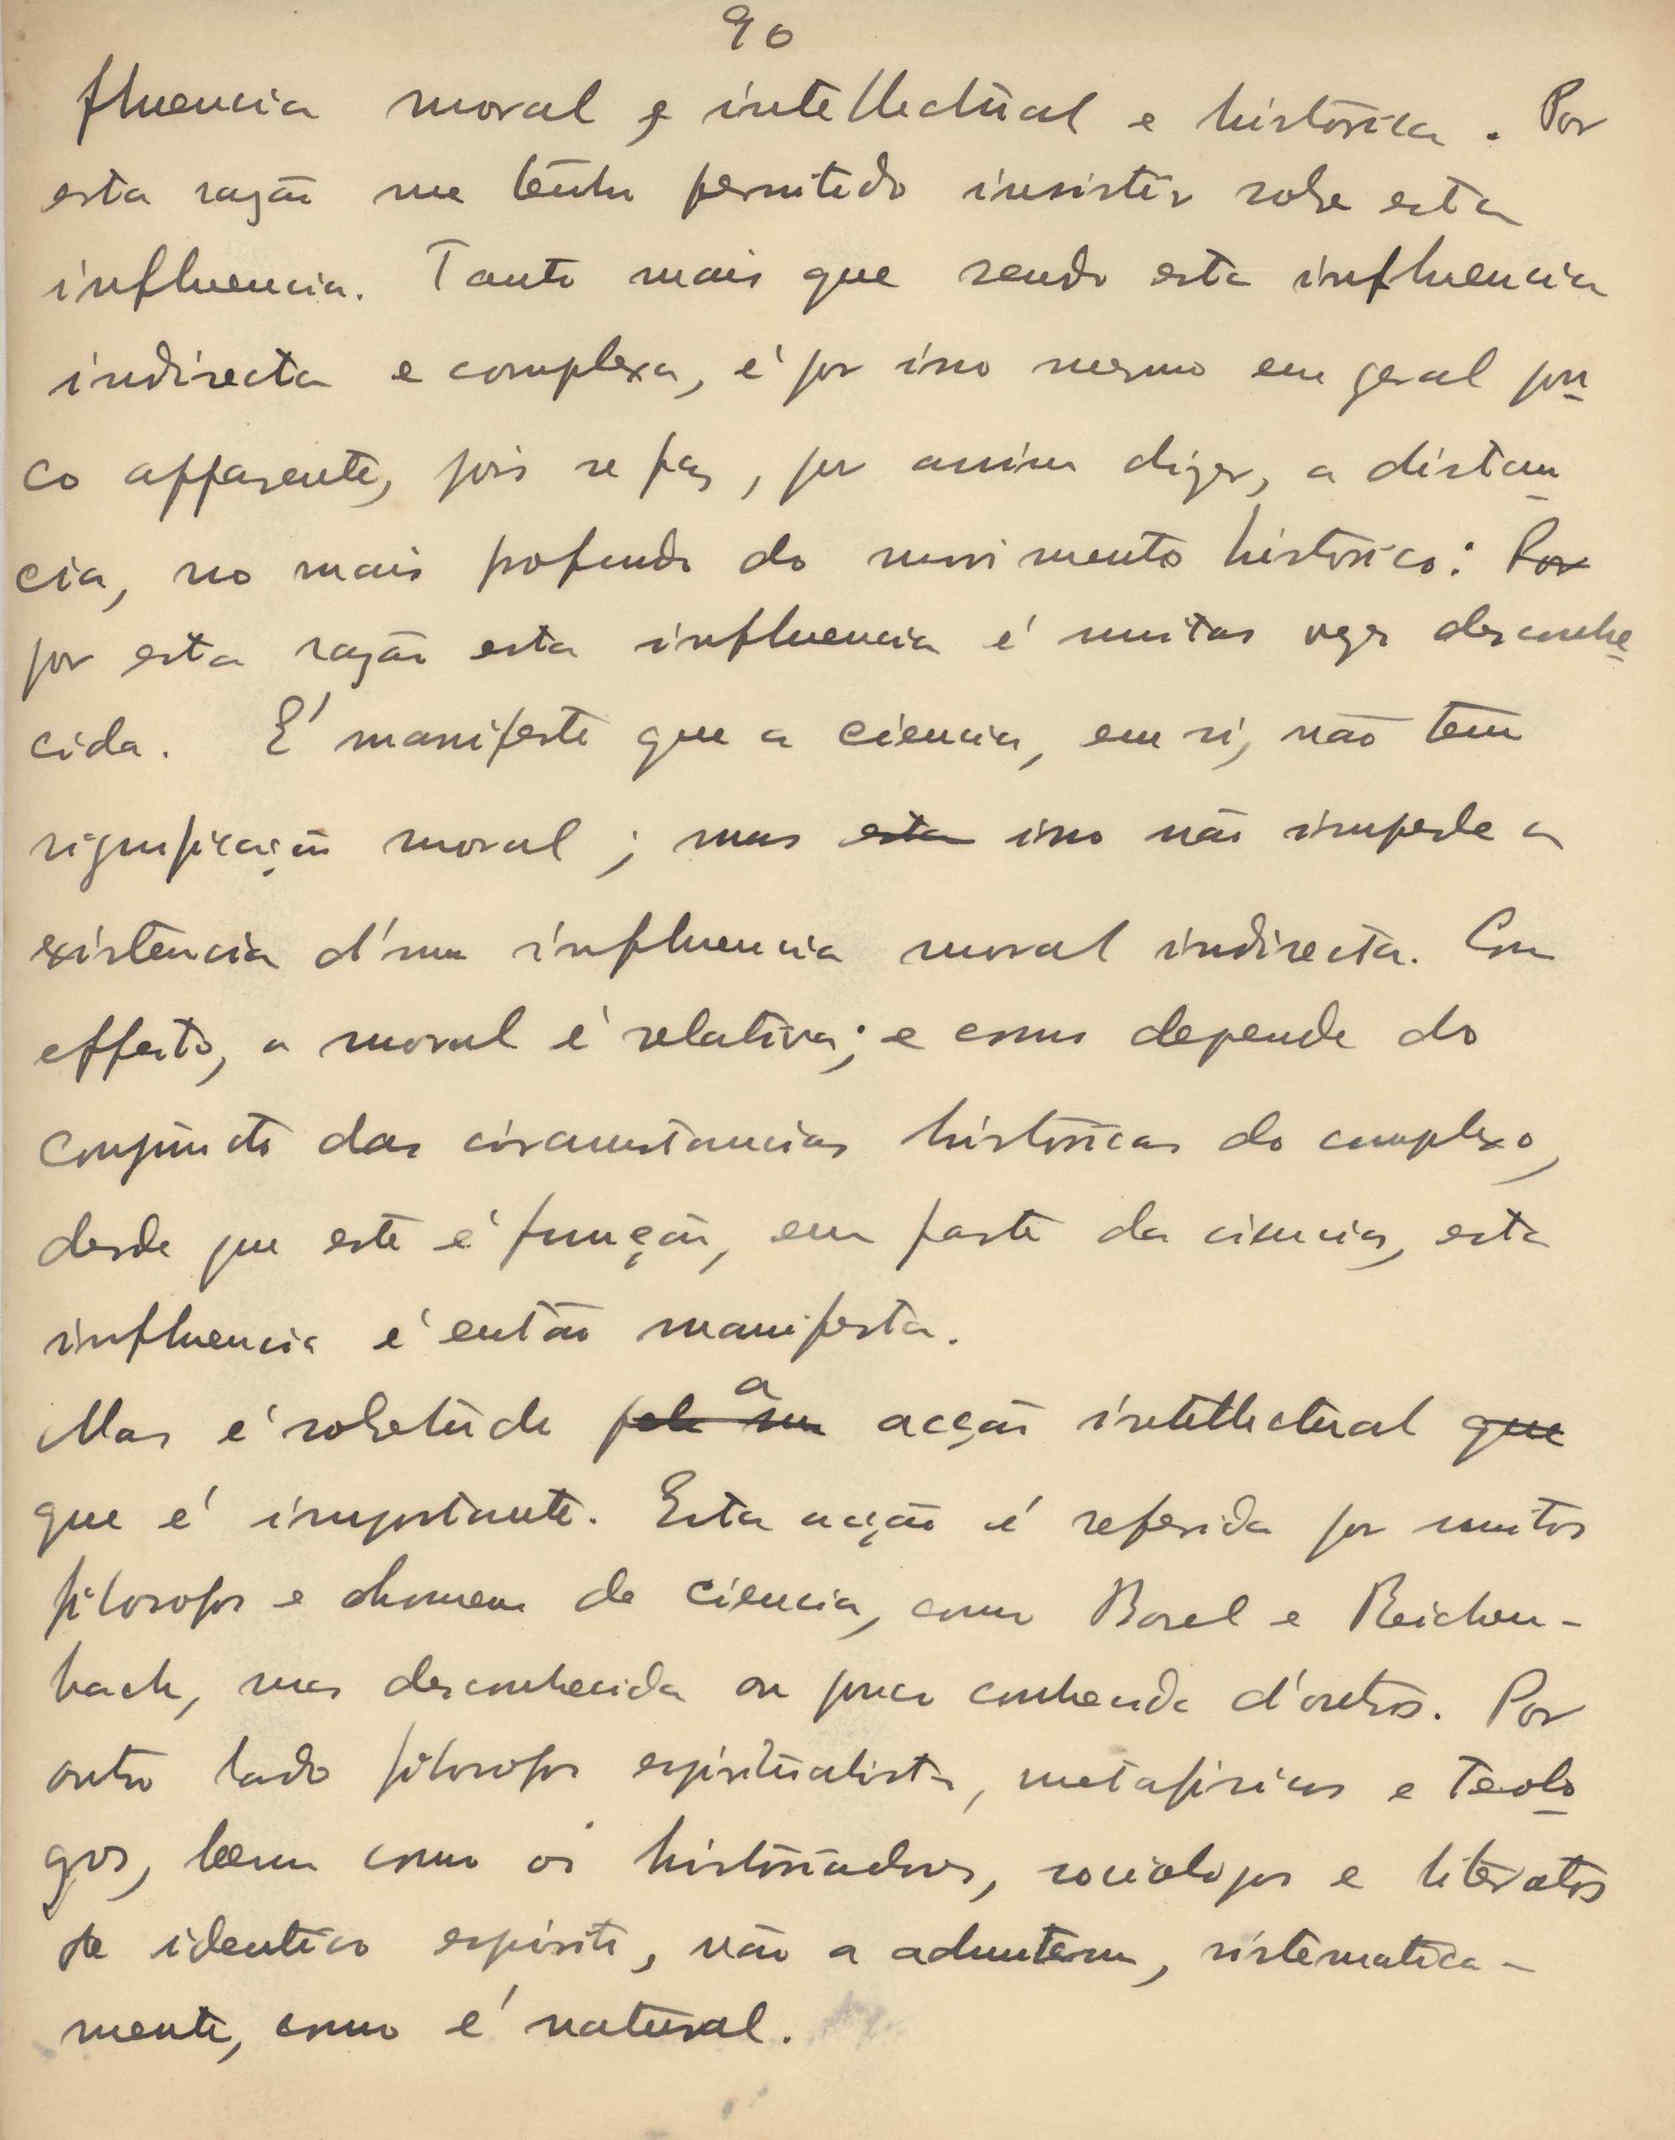 90
fluencia moral e intellectual e historica. Por
esta razão me tenho permitido insistir sobre esta
influencia. Tanto mais que sendo esta influencia
indirecta e complexa, é por isso mesmo em geral pou
co apparente, pois se faz, por assim dizer, a distan
cia, no mais profundo do movimento historico: Por
por esta razão esta influencia é muitas vezes desconhe
cida. E' manifesto que a ciencia, em si, não tem
significação moral; mas esta isso não impede a
existencia d'uma influencia moral indirecta. Com
effeito, a moral é relativa; e como depende do
conjuncto das circumstancias historicas do complexo,
desde que este é função, em parte da ciencia, esta
influencia é então manifesta.
Mas é sobretudo pela sua a acção intellectual que
que é importante. Esta acção é referida por muitos
filosofos e homens de ciencia, como Borel e Reichen-
bach, mas desconhecida ou pouco conhecida d'outros. Por
outro lado filosofos espiritualistas, metafisicos e teolo
gos, bem como os historiadores, sociologos e literatos
de identico espirito, não a admitem, sistematica-
mente, como é natural.